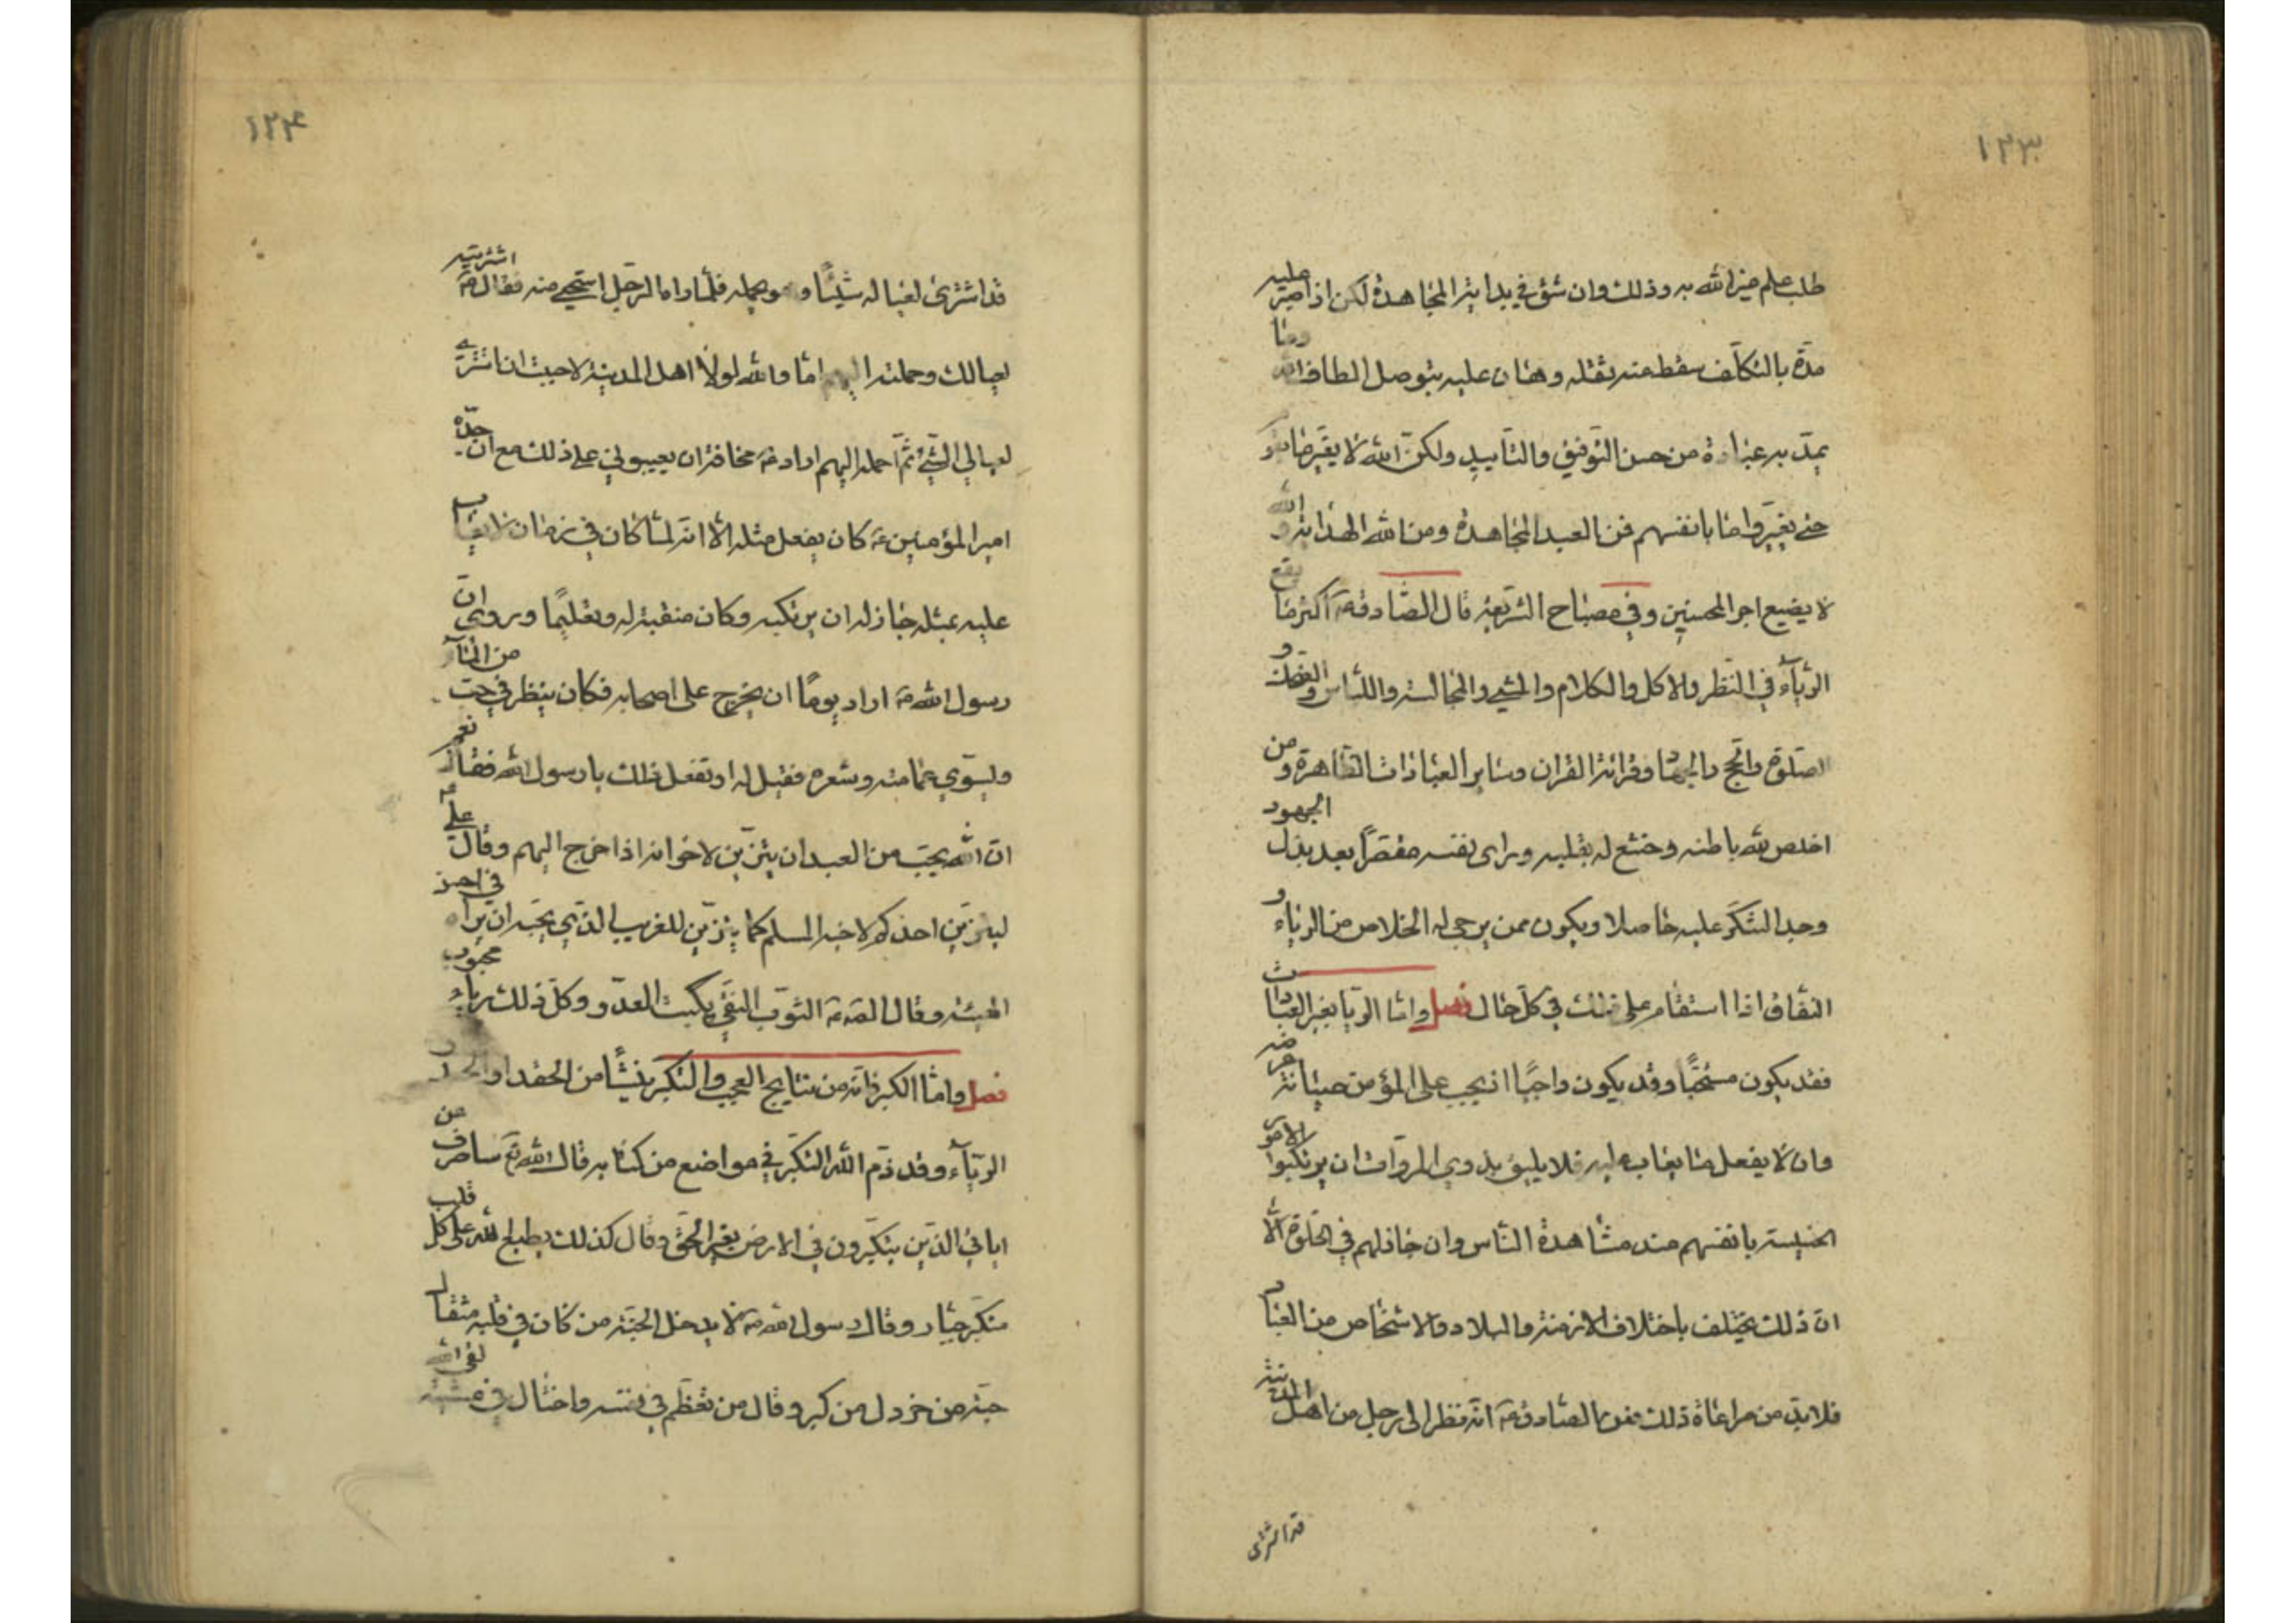 ١٢٣
طلب علم غير الله به وذلك وان شق في بداية المجاهدة لكن اذا صبر عليه
مدة بالتكلف سقط عنه ثقله وهان عليه بتوصل الطاف الله وما
يمد به عباده من حسن التوفيق والتاييد ولكن الله لا يغير ما بقوم
حتى يغيروا ما بانفسهم فمن العبد المجاهدة ومن الله الهداية و الله
لا يضيع اجر المحسنين وفي مصباح الشريعة قال الصادق ع اكثر ما يقع
الرياء في النظر والاكل والكلام والمشي والمجالسة واللباس والضحك و
الصلوة والحج والجهاد وقرائة القران وساير العبادات الظاهرة ومن
اخلص لله باطنه وخشع له بقلبه وراى نفسه مقصرا بعد بذل المجهود
وجد الشكر عليه حاصلا ويكون ممن يرجى له الخلاص من الرياء و
النفاق اذا استقام على ذلك في كل حال فصل واما الريا بغير العبادات
فقد يكون مستحبا وقد يكون واجبا اذ يجب على المؤمن صيانة عرضه
وان لا يفعل ما يعاب عليه فلا يليق بذوي المروات ان يرتكبوا الامور
الخسيسة بانفسهم عند مشاهدة الناس وان جاز لهم في الخلوة الا
ان ذلك يختلف باختلاف الازمنة والبلاد والاشخاص من العباد
فلا بد من مراعاة ذلك فعن الصادق ع انه نظر الى رجل من اهل المدينة
قد اشترى
١٢٤
قد اشترى لعياله شيئا وهو يحمله فلما راه الرجل استحيى منه فقال ع اشتريته
لعيالك وحملته اليهم اما والله لولا اهل المدينة لاحببت ان اشتري
لعيالي الشيء ثم احمله اليهم اراد ع مخافة ان يعيبوني على ذلك مع ان جده
امير المؤمنين ع كان يفعل مثله الا انه لما كان في زمان لا يعاب
عليه بمثله جاز له ان يرتكبه وكان منقبة له وتعليما وروي ان
رسول الله ص اراد يوما ان يخرج على اصحابه فكان ينظر في حب من الماء
ويسوي عمامته وشعره فقيل له او تفعل ذلك يا رسول الله فقال نعم
ان الله يحب من العبد ان يتزين لاخوانه اذا خرج اليهم وقال علي ع
ليتزين احدكم لاخيه المسلم كما يتزين للغريب الذي يحب ان يراه في احسن
الهيئة وقال الص ع الثوب النقي يكبت العدو وكل ذلك رياء محبوب
فصل واما الكبر فانه من نتايج العجب والتكبر ينشأ من الحقد او الحسد او
الرياء وقد ذم الله التكبر في مواضع من كتابه قال الله تع ساصرف عن
اياتي الذين يتكبرون في الارض بغير الحق وقال كذلك يطبع الله على كل قلب
متكبر جبار وقال رسول الله ص لا يدخل الجنة من كان في قلبه مثقال
حبة من خردل من كبر وقال من تعظم في نفسه واختال في مشيته لقى الله